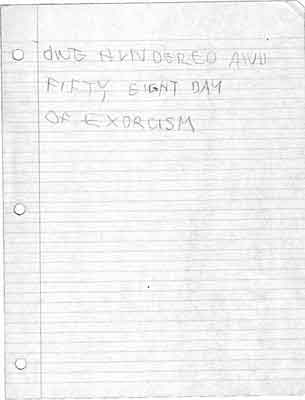 ONE HUNDERED AND
FIFTY EIGHT DAY
OF EXORCISM